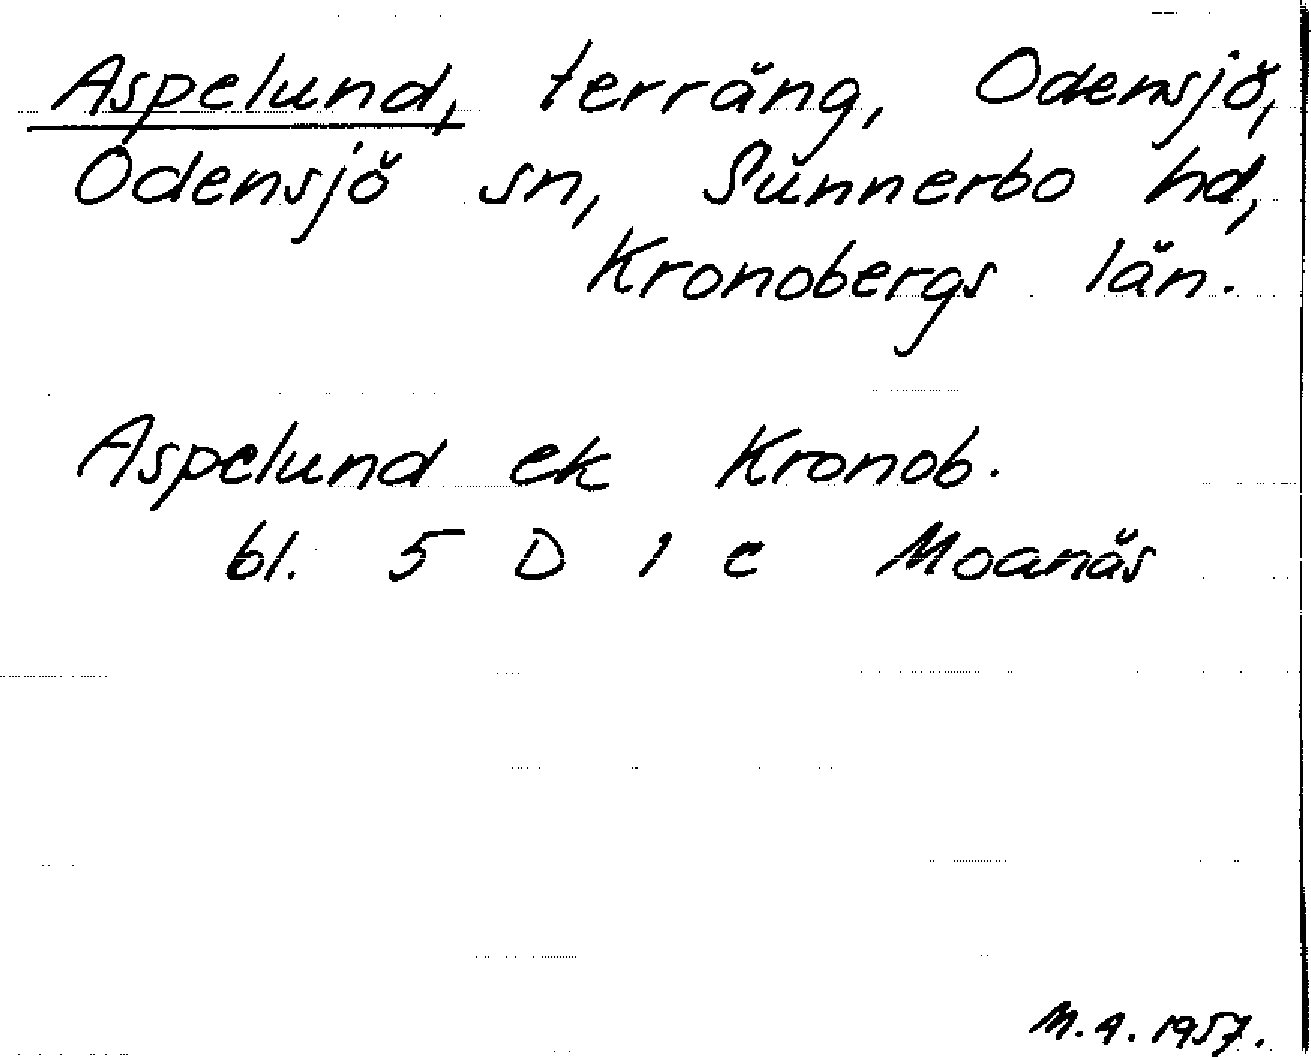 Aspelund, terräng, Odensjö,
Odensjö sn, Sunnerbo hd,
Kronobergs län.
Aspelund ek Kronob.
bl. 5 D 1 c Moanäs
M.A. 1957.